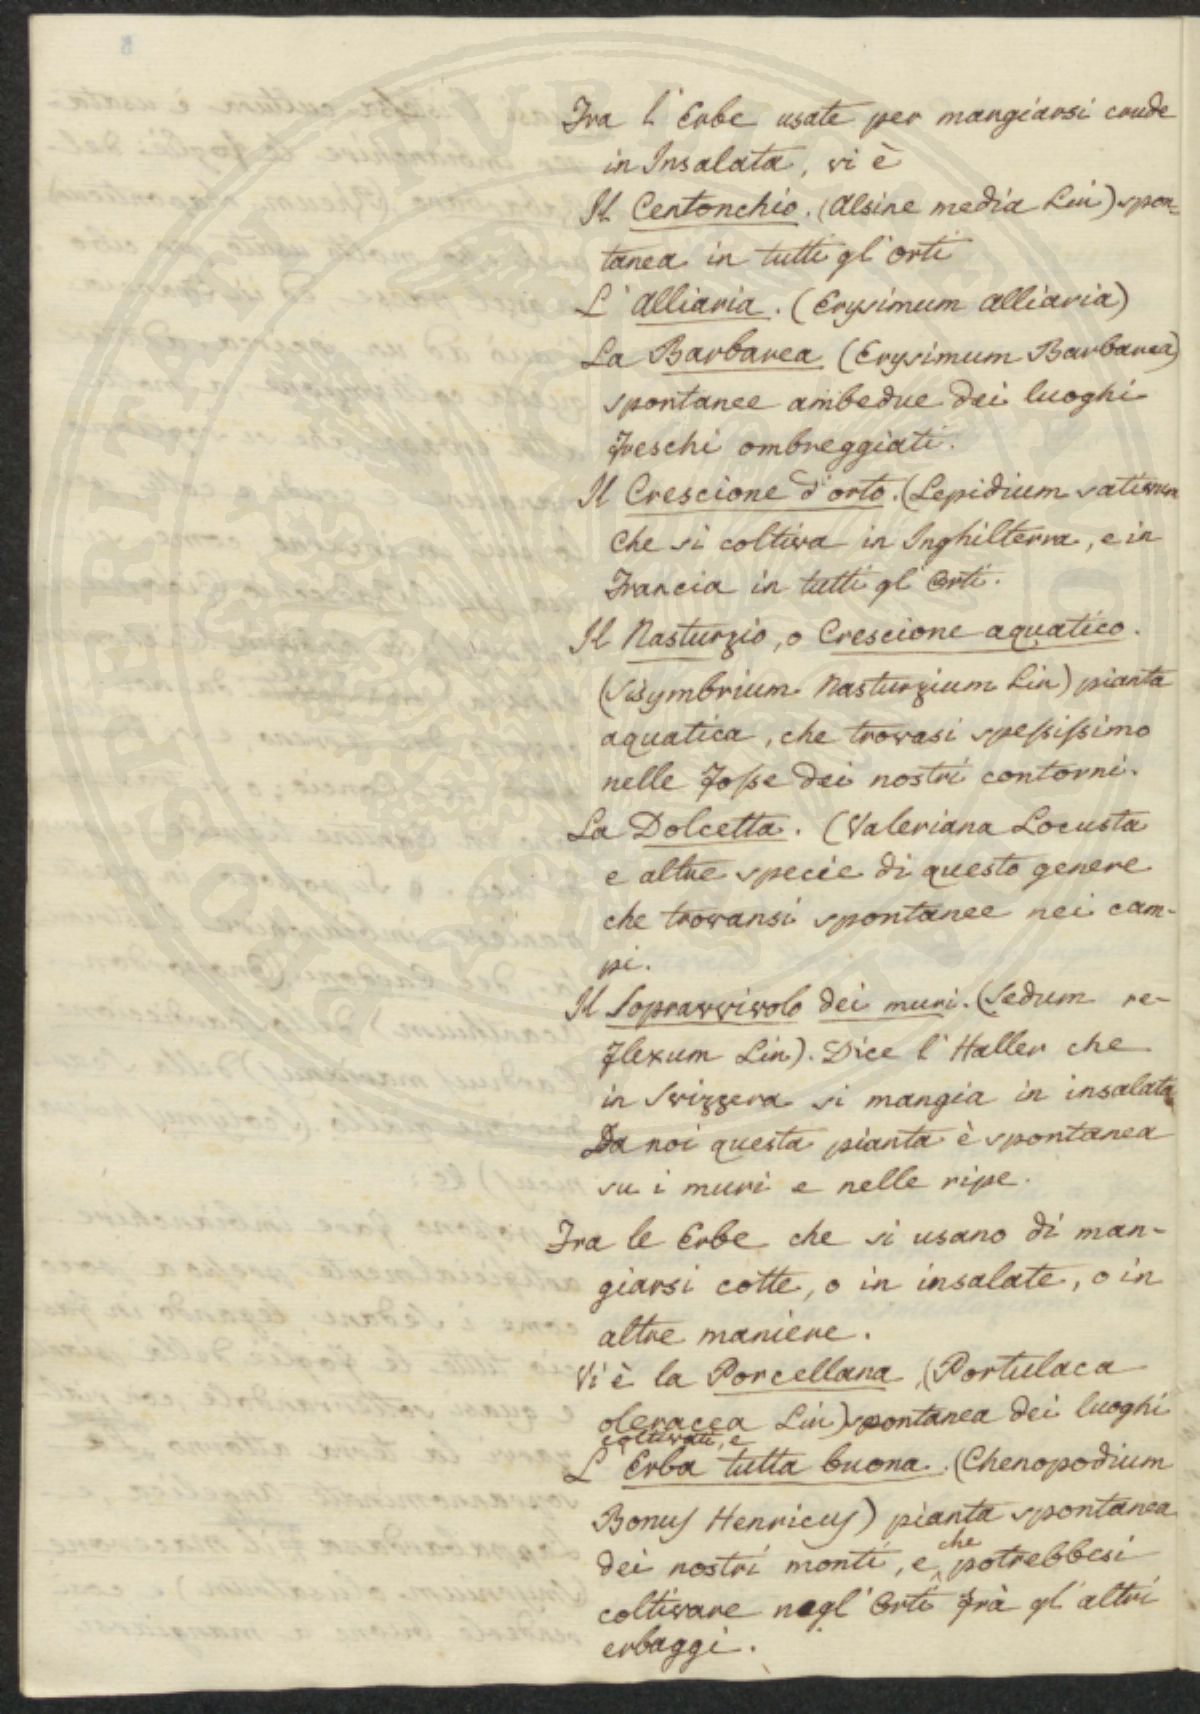 Fra l' Erbe usate per mangiarsi crude
in Insalata, vi è
Il Centonchio. (Alsine media Lin) spon-
tanea in tutti gl' orti
L' Alliaria. (Erysimum alliaria)
La Barbarea (Erysimum Barbarea)
spontanee ambedue dei luoghi
freschi ombreggiati.
Il Crescione d'orto. (Lepidium sativum
che si coltiva in Inghilterra, e in
Francia in tutti gl' Orti.
Il Nasturzio, o Crescione aquatico.
(Sisymbrium Nasturzium Lin) pianta
aquatica, che trovasi speſsiſsimo
nelle Foſse dei nostri contorni.
La Dolcetta. (Valeriana Locusta
e altre specie di questo genere
che trovansi spontanee nei cam-
pi.
Il Sopravvivolo dei muri. (Sedum re-
flexum Lin). Dice l' Haller che
in Svizzera si mangia in insalata
Da noi questa pianta è spontanea
su i muri e nelle ripe.
Fra le Erbe che si usano di man-
giarsi cotte, o in insalate, o in
altre maniere.
Vi è la Porcellana (Portulaca
oleracea Lin) spontanea dei luoghi
coltivati, e
L' Erba tutta buona. (Chenopodium
Bonus Henricus) pianta spontanea
dei nostri monti, e che potrebbesi
coltivare negl' Orti frà gl' altri
erbaggi.